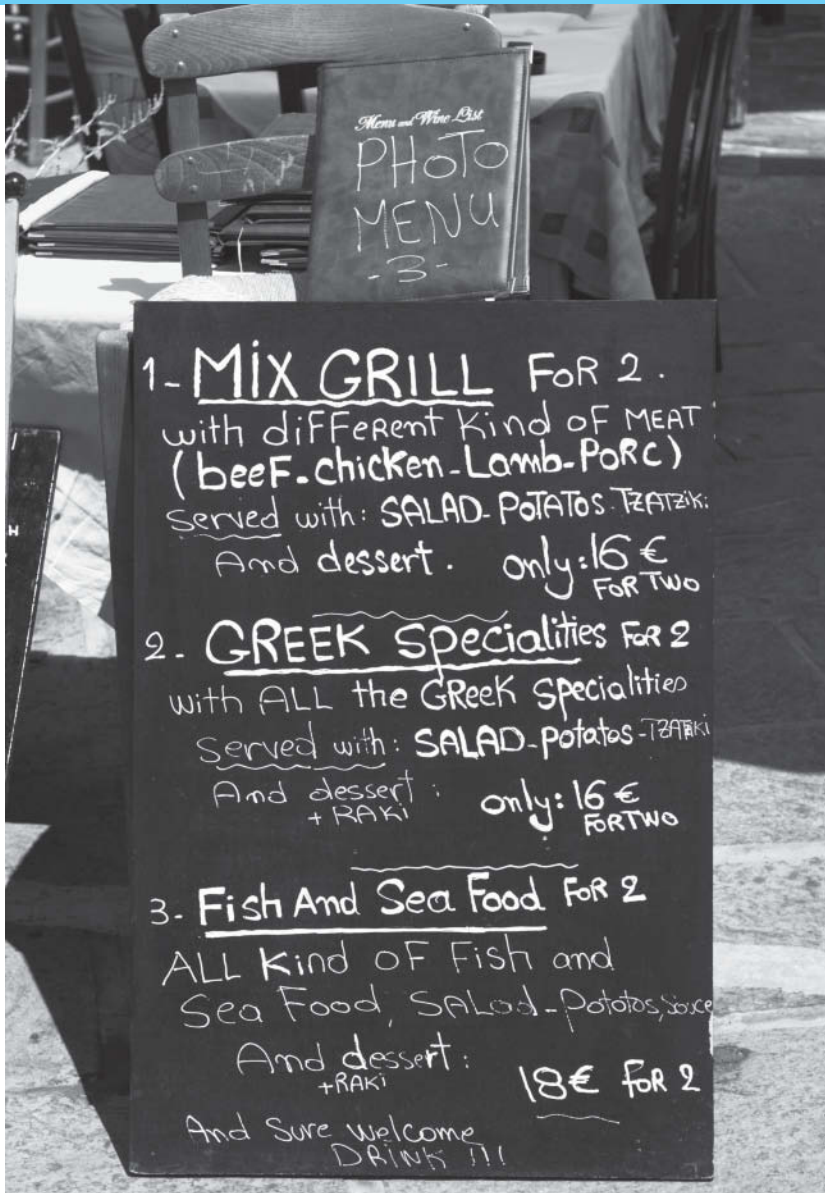 Menu and Wine List
PHOTO
MENU
-3-
1- MIX GRILL FOR 2.
with different Kind of MEAT
(beeF-chicken-Lamb-PoRC)
Served with: SALAD-POTATOS-TZATZiKi
And dessert. only:16 €
FOR TWO
2- GREEK Specialities FOR 2
with ALL the GReeK Specialities
Served with: SALAD-potatos-TZATZIKi
And dessert: only:16 €
+RAKi FORTWO
3- Fish And Sea Food FOR 2
ALL Kind OF Fish and
Sea Food, SALad-Potatos, Sauce
And dessert:
+RAKi 18€ FOR 2
And Sure welcome
DRINK !!!
H